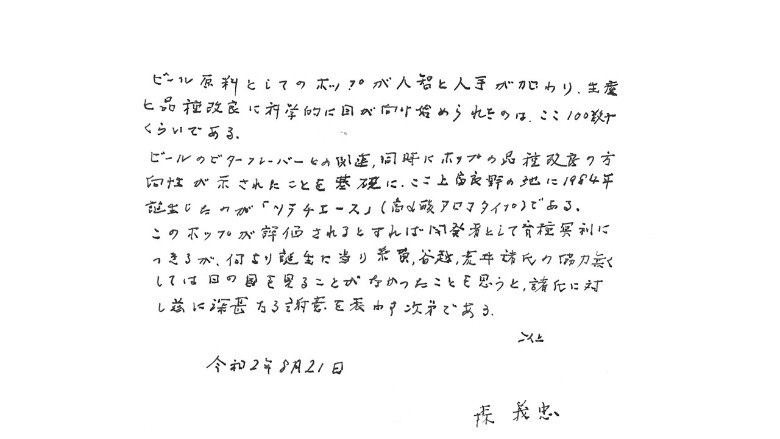 ビール原料としてのホップが人智と人手が加わり、生産
と品種改良に科学的に目が向け始められたのは、ここ100数十
くらいである。
ビールのビターフレーバーとの関連,同時にホップの品種改良の方
向性が示されたことを基礎に、ここ上富良野の地に1984年
誕生したのが「ソラチエース」(高α酸アロマタイプ)である。
このホップが評価されるとすれば開発者として育種冥利に
つきるが、何より誕生に当り 谷越,荒井 諸氏の協力無く
しては日の目を見ることがなかったことを思うと、諸氏に対
し 深甚なる謝意を表わす次第である。
以上
令和2年8月21日
義忠